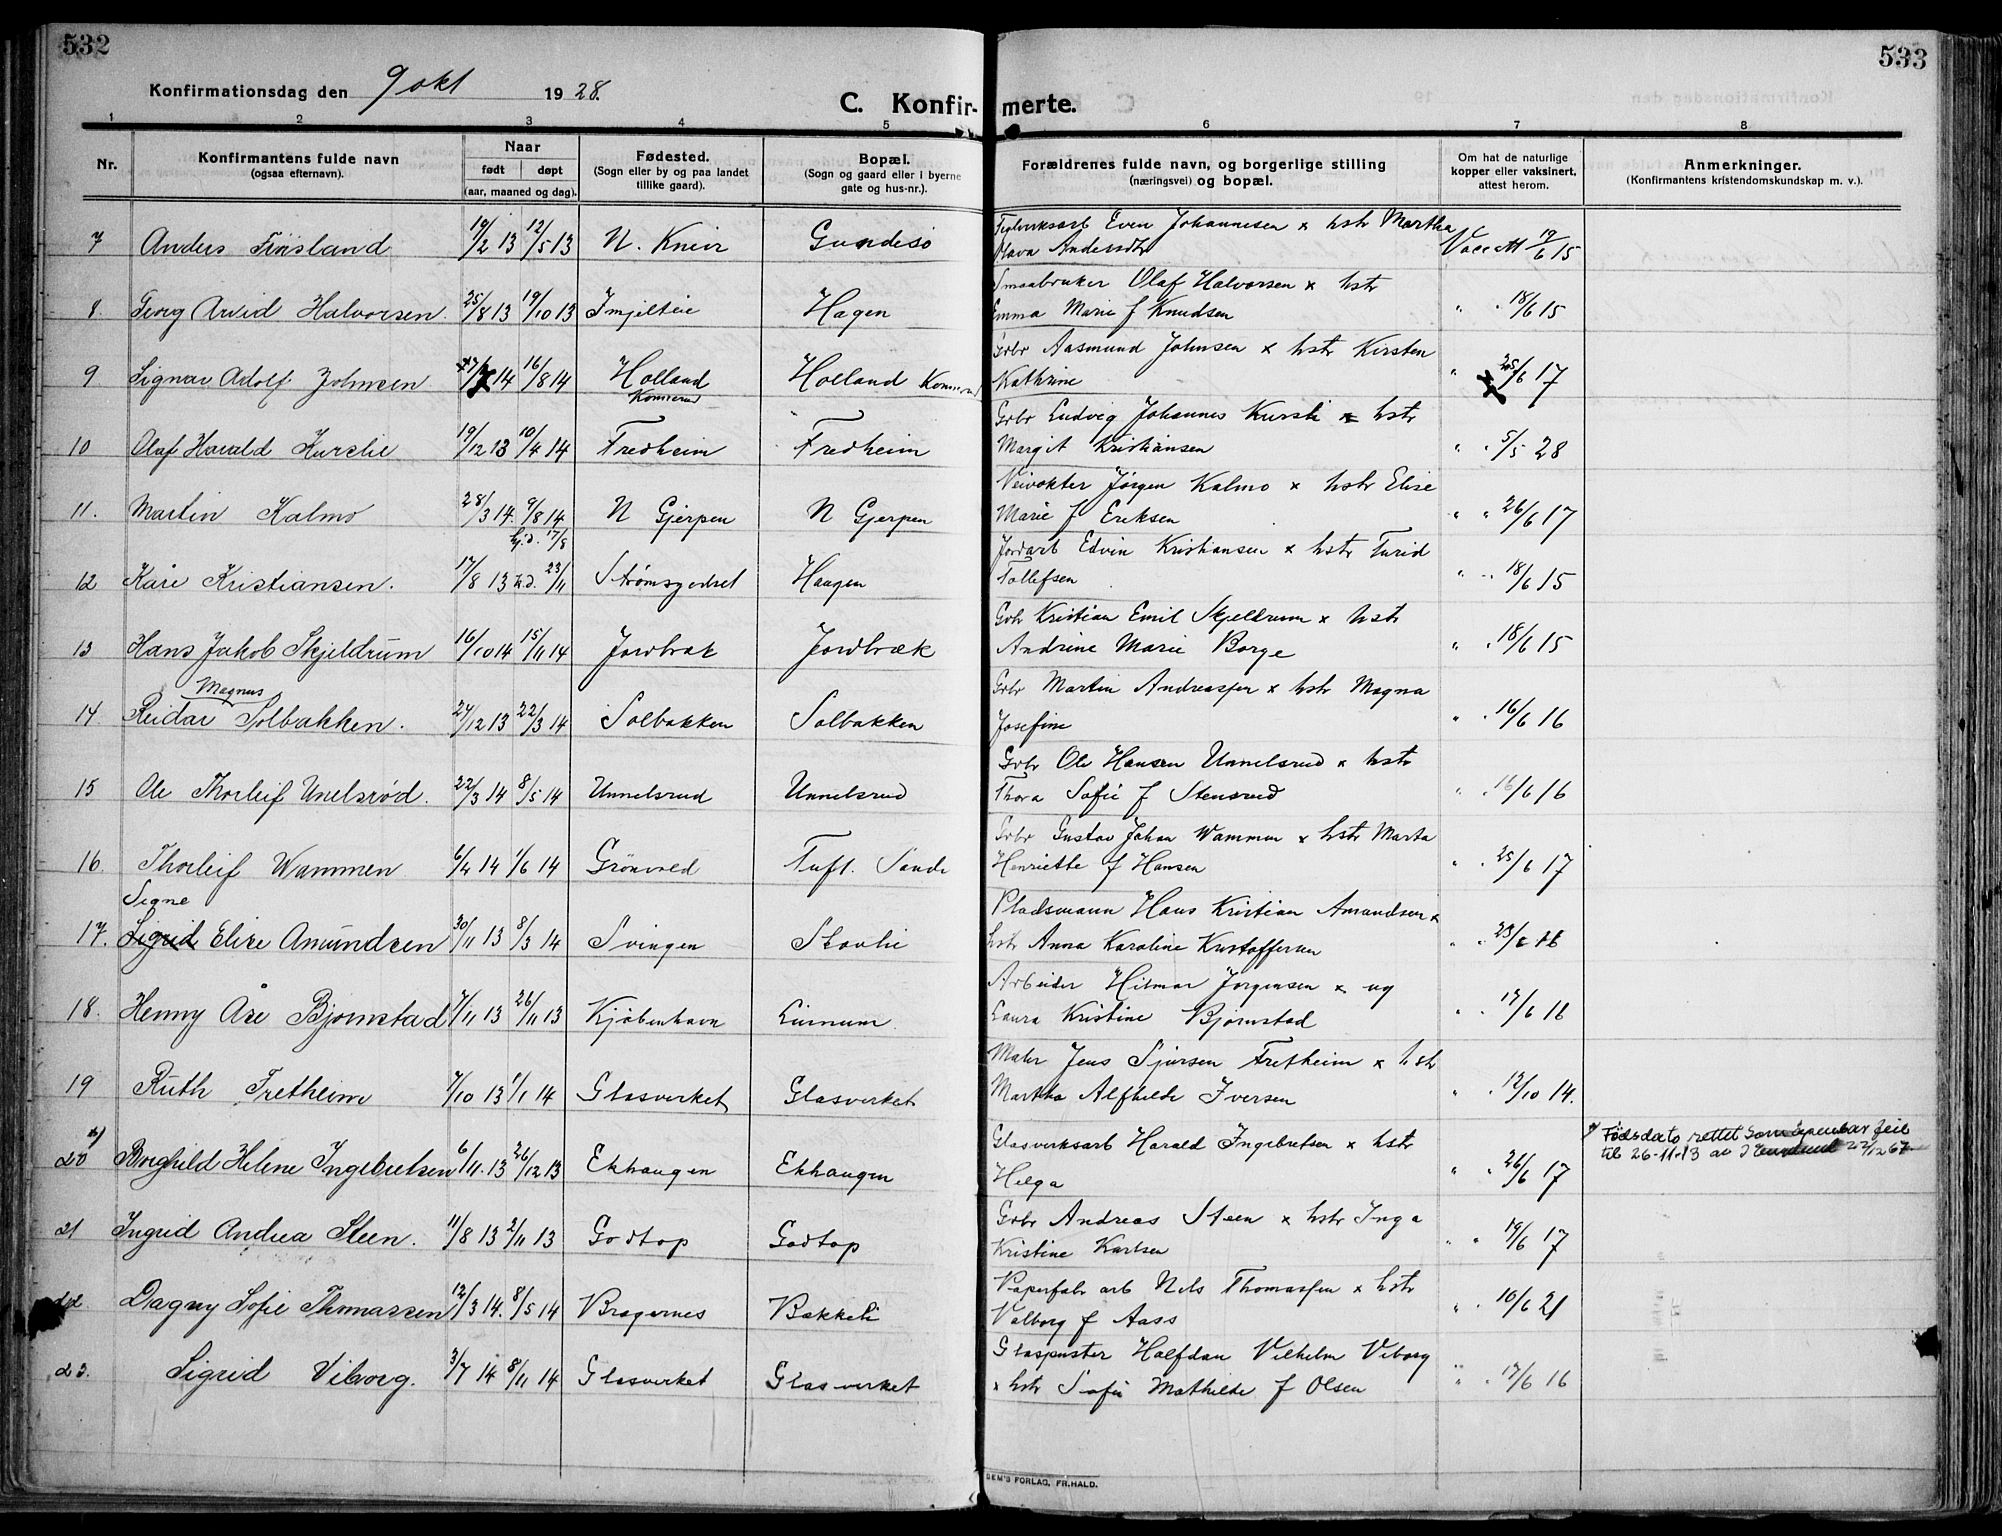 532
533
Konfirmationsdag den 9 okt 1928.
C. Konfir- merte.
1 2 3 4 5 6 7 8
Nr.
Konfirmantens fulde navn
(ogsaa efternavn).
Naar
født døpt
(aar, maaned og dag).
Fødested.
(Sogn eller by og paa landet
tillike gaard).
Bopæl.
(Sogn og gaard eller i byerne
gate og hus-nr.).
Forældrenes fulde navn, og borgerlige stilling
(næringsvei) og bopæl.
Om hat de naturlige
kopper eller vaksinert,
attest herom.
Anmerkninger.
(Konfirmantens kristendomskundskap m. v.).
Even Johannesen x hstr Martha
7 Anders 19/2 13 12/5 13 N. Gundesø Andersdtr Vacc att 19/6 15
Smaabruker Olaf Halvorsen x hstr
8. Georg Arvid Halvorsen. 25/8 13 19/10 13 Hagen Emma Marie f Knudsen " " 18/6 15
Gbr Aasmund Johnsen x hstr Kirsten
9 Signar Adolf Johnsen 14 16/8 14 Holland Holland Kathrine " 25/6 17
Konnerud
Gbr Ludvig Johannes x hstr
10 Olaf Harald 19/12 13 10/4 14 Fredheim Fredheim Margit Kristiansen " " 5/5 28
Veivokter Jørgen Kalmo x hstr Elise
11. Martin Kalmo 28/3 14. 9/8 14 N Gjerpen N Gjerpen Marie f Eriksen " " 26/6 17
hj.d. 17/8
Jordarb Edvin Kristiansen x hstr Turid
12 Kåre Kristiansen. 17/8 13 23/11 Strømsgodset Haugen Tollefsen " " 18/6 15
Gbr Kristian Emil Skjeldrum x hstr
13 Hans Jakob Skjeldrum 16/10 14 15/11 14 Jordbræk Jordbræk Andrine Marie Borge " " 18/6 15
Magnus
Gbr Martin Andreassen x hstr Magna
14. Reidar Solbakken. 27/12 13 22/3 14 Solbakken Solbakken Josefine " " 16/6 16
Gbr Ole Hansen Unnelsrud x hstr
15 Ole Thorleif Unelsrød. 22/3 14 8/5 14 Unnelsrud Unnelsrud Thora Sofie f Stensrud " " 16/6 16
Gbr Gustav Johan Wammen x hstr Marta
16. Thorleif Wammen 6/4 14 1/6 14 Grønvold Tuft. Sande Henriette f Hansen " " 25/6 17
Signe
Pladsmann Hans Kristian Amundsen x
17. Sigrid Elise Amundsen 30/11 13 8/3 14 Svingen Skovlie hstr Anna Karoline Kristoffersen " "
Arbeider Hilmar Jørgensen x ug
18. Henny Åse Bjørnstad 7/11 13 26/11 13 Kjøbenhavn Linnum. Laura Kristine Bjørnstad " " 17/6 16
Maler Jens Sjursen Fretheim x hstr
19 Ruth Fretheim 7/10 13 1/1 14 Glasverket Glasverket Martha Alfhilde Iversen " " 12/10 14.
Glasverksarb Harald Ingebretsen x hstr
20 Borghild Helene Ingebretsen 6/11. 13 26/12 13 Ekhaugen Ekhaugen Helga " " 26/6 17
Fødsdato rettet som åpenbar feil
til 26-11-13 av 22/12 67
Gbr Andreas Steen x hstr Inga
21 Ingrid Andrea Steen. 11/8 13 2/11 13 Godtop Godtop Kristine Karlsen " " 19/6 17
Papirfabr arb Nils Thomassen x hstr
22. Dagny Sofie Thomassen 12/3 14. 8/5 14 Bragernes Bakkeli Valborg f Aass " " 16/6 21
Glaspuster Halfdan Vilhelm Viborg
23. Sigrid Viborg. 3/7 14 8/11 14 Glasverket Glasverket x hstr Sofie Mathilde f Olsen " " 17/6 16
DEM'S FORLAG, FR.HALD.